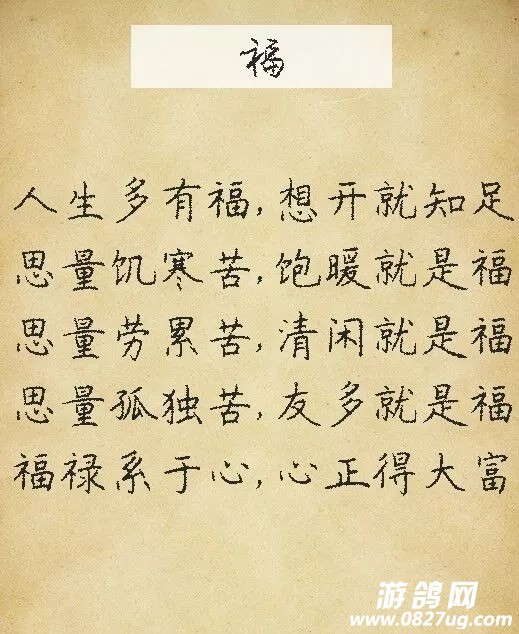 福
人生多有福,想开就知足
思量饥寒苦,饱暖就是福
思量劳累苦,清闲就是福
思量孤独苦,友多就是福
福禄系于心,心正得大富
游鸽网
www.0827ug.com